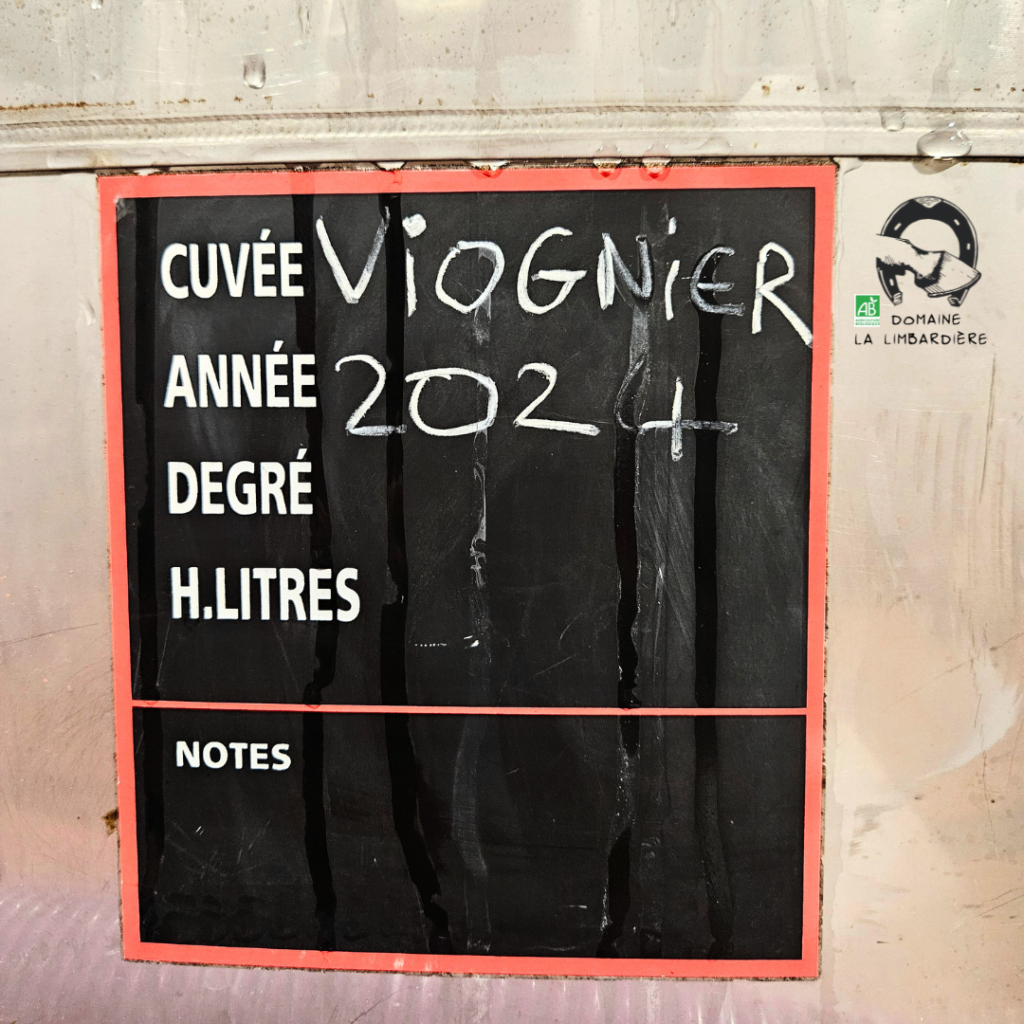 CUVÉE VIOGNIER
ANNÉE 2024
DEGRÉ
H.LITRES
NOTES
AB
DOMAINE
LA LIMBARDIÈRE